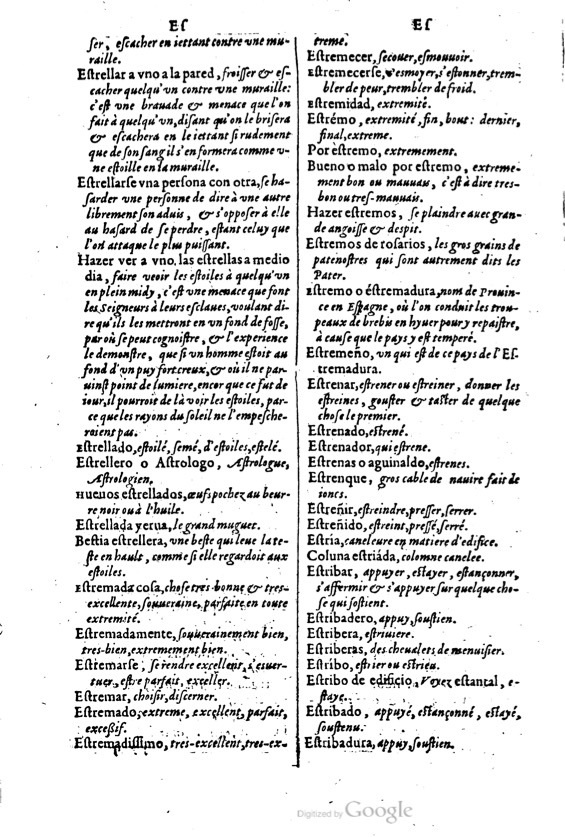 Eſ
ſer, eſcacher en iettant contre vne mu-
raille.
Eſtrellar a vno a la pared, froiſſer & eſ-
cacher quelqu'vn contre vne muraille:
c'eſt vne brauade & menace que l'on
fait à quelqu'vn, diſant qu'on le briſera
& eſcachera en le iettant ſi rudement
que de ſon ſang il s'en formera comme v-
ne eſtoille en la muraille.
Eſtrellarſe vna perſona con otra, ſe ha-
ſarder vne perſonne de dire à vne autre
librement ſon aduis, & s'oppoſer à elle
au haſard de ſe perdre, eſtant celuy que
l'on attaque le plus puiſſant.
Hazer ver a vno, las eſtrellas a medio
dia, faire veoir les eſtoiles à quelqu'vn
en plein midy, c'eſt vne menace que font
les Seigneurs à leurs eſclaues, voulant di-
re qu'ils les mettront en vn fond de foſſe,
par où ſe peut cognoiſtre, & l'experience
le demonſtre, que ſi vn homme eſtoit au
fond d'vn puy fort creux, & où il ne par-
uinſt point de lumiere, encor que ce fut de
iour, il pourroit de là voir les eſtoiles, par-
ce que les rayons du ſoleil ne l'empeſche-
roient pas.
Eſtrellado, eſtoilé, ſemé, d'eſtoiles, eſtelé.
Eſtrellero o Aſtrologo, Aſtrologue,
Aſtrologien.
Hueuos eſtrellados, œufs pochez au beur-
re noir ou à l'huile.
Eſtrellada yerua, le grand muguet.
Beſtia eſtrellera, vne beſte qui leue la te-
ſte en hault, comme ſi elle regardoit aux
eſtoiles.
Eſtremada coſa, choſe tres-bonne & tres-
excellente, ſouueraine, parfaite en toute
extremité.
Eſtremadamente, ſouuerainement bien,
tres-bien, extremement bien.
Eſtremarſe, ſe rendre excellent, s'euer-
tuer, eſtre parfait, exceller.
Eſtremar, choiſir, diſcerner.
Eſtremado, extreme, excellent, parfait,
exceßif.
Eſtremadiſſimo, tres-excellent, tres-ex-
Eſ
treme.
Eſtremecer, ſecouer, eſmouuoir.
Eſtremecerſe, s'eſmoyer, s'eſtonner, trem-
bler de peur, trembler de froid.
Eſtremidad, extremité.
Eſtrémo, extremité, fin, bout: dernier,
final, extreme.
Por eſtremo, extremement.
Bueno o malo por eſtremo, extreme-
ment bon ou mauuau, c'eſt à dire tres-
bon ou treſ-mauuais.
Hazer eſtremos, ſe plaindre auec gran-
de angoiſſe & deſpit.
Eſtremos de roſarios, les gros grains de
patenoſtres qui ſont autrement dits les
Pater.
Eſtremo o éſtremadura, nom de Prouin-
ce en Eſpagne, où l'on conduit les trou-
peaux de brebis en hyuer pour y repaiſtre,
à cauſe que le pays y eſt temperé.
Eſtremeño, vn qui eſt de ce pays de l'Eſ-
tremadura.
Eſtrenar, eſtrener ou eſtreiner, donner les
eſtreines, gouſter & taſter de quelque
choſe le premier.
Eſtrenado, eſtrené.
Eſtrenador, qui eſtrene.
Eſtrenas o aguinaldo, eſtrenes.
Eſtrenque, gros cable de nauire fait de
ioncs.
Eſtreñir, eſtreindre, preſſer, ſerrer.
Eſtreñido, eſtreint, preſſé, ſerré.
Eſtria, caneleure en matiere d'edifice.
Coluna eſtriáda, colomne canelee.
Eſtribar, appuyer, eſtayer, eſtançonner,
s'affermir & s'appuyer ſur quelque cho-
ſe qui ſoſtient.
Eſtribadero, appuy, ſouſtien.
Eſtribera, eſtriuiere.
Eſtriberas, des cheualets de menuiſier.
Eſtríbo, eſtrier ou eſtrieu.
Eſtribo de edificio, Voyez eſtantal, e-
ſtaye.
Eſtribado, appuyé, eſtançonné, eſtayé,
ſouſtenu.
Eſtribadura, appuy, ſouſtien.
Digitized by Google